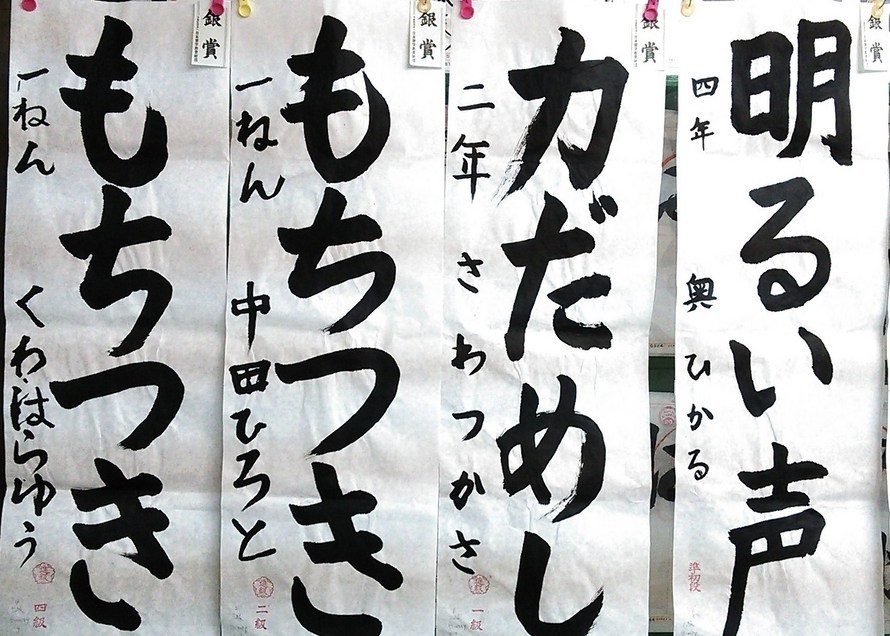 明るい声
四年 奥ひかる
準初段
銀賞
力だめし
二年 さわつかさ
一級
銀賞
もちつき
一ねん 中田ひろと
二級
銀賞
もちつき
一ねん くわはらゆう
四級
銀賞